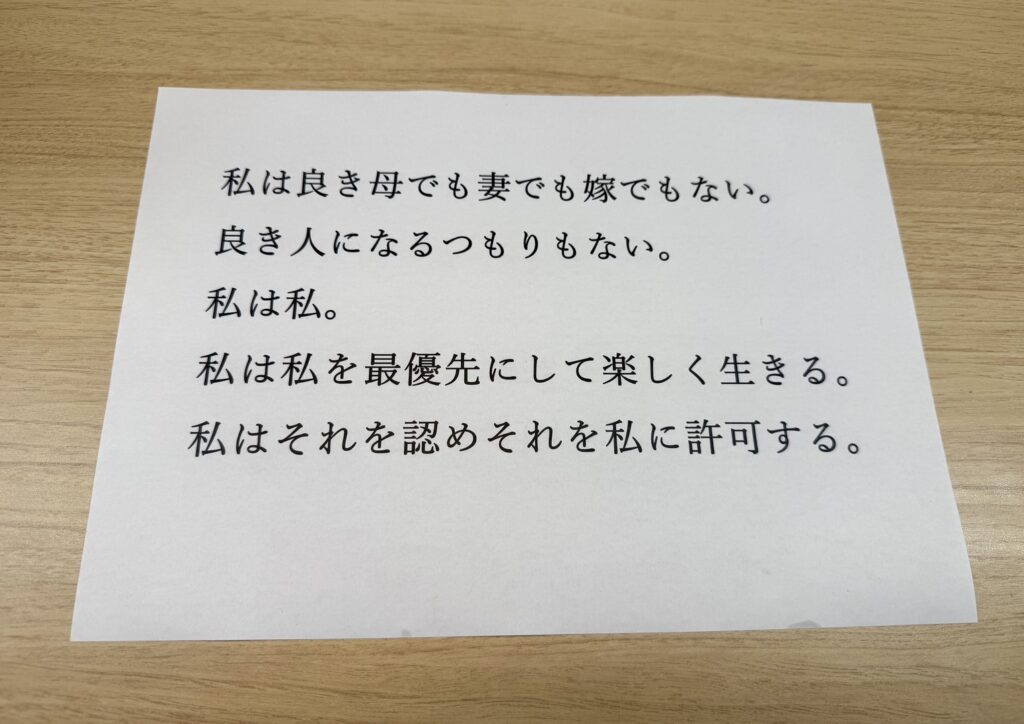 私は良き母でも妻でも嫁でもない。
良き人になるつもりもない。
私は私。
私は私を最優先にして楽しく生きる。
私はそれを認めそれを私に許可する。